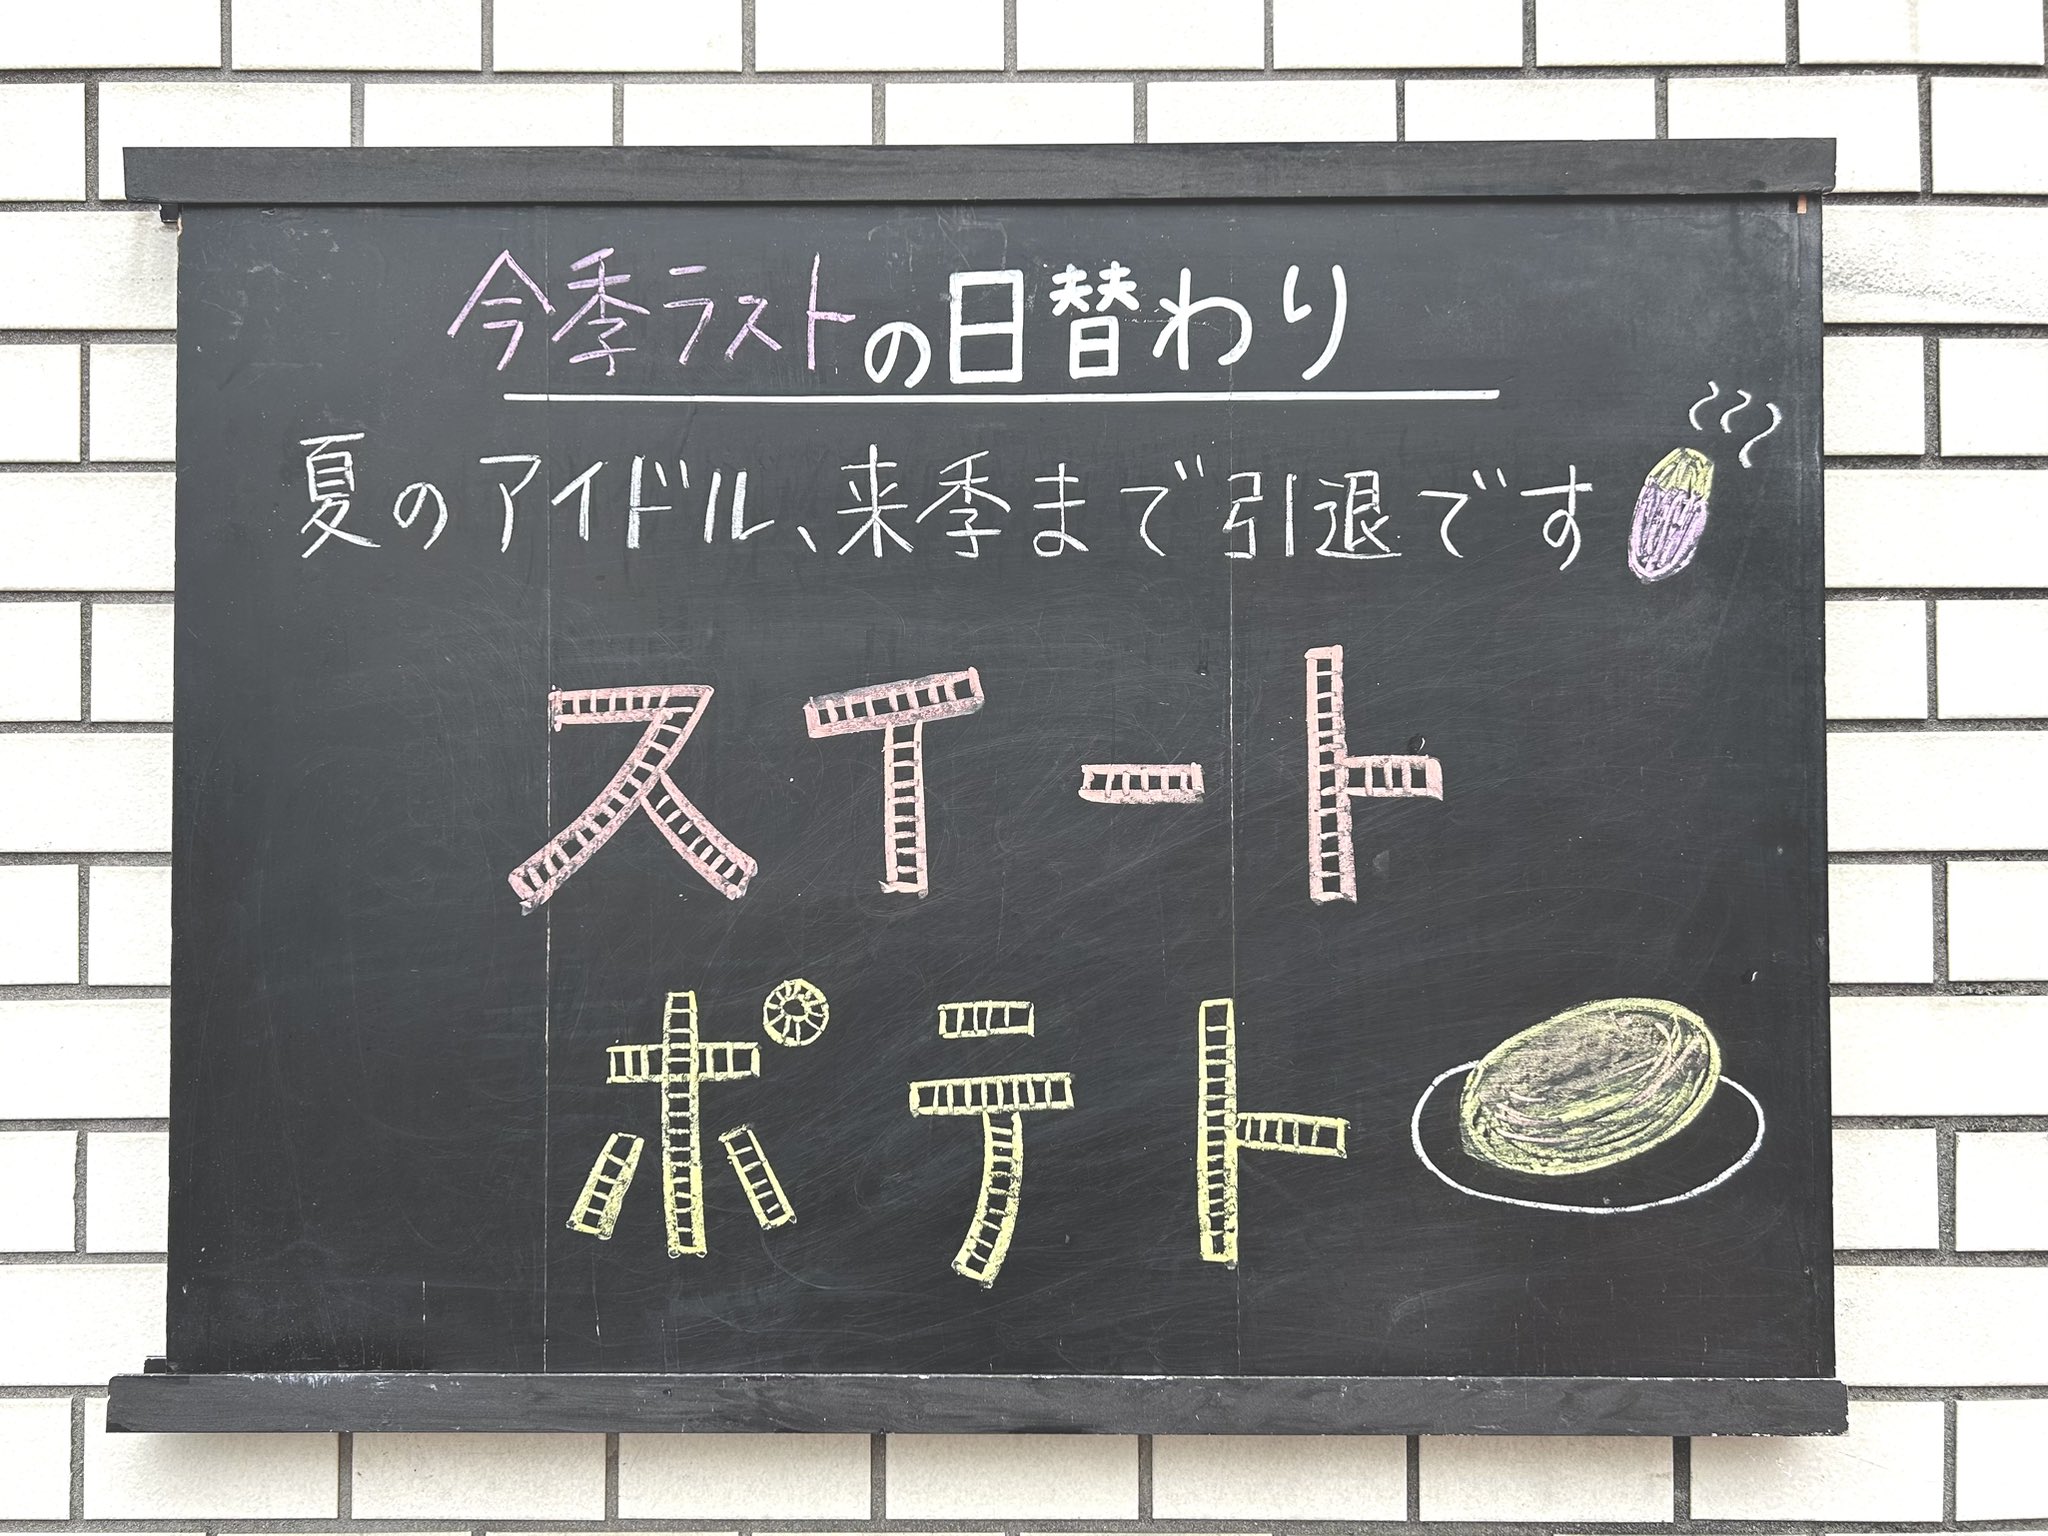 今季ラストの日替わり
夏のアイドル、来季まで引退です
スイート
ポテト